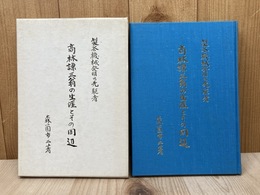 製茶機械発明の先覚者
高林謙三翁の生涯とその周辺
森薗市二著
製茶機械発明の先覚者
高林謙三翁の生涯とその周辺
森薗市二著